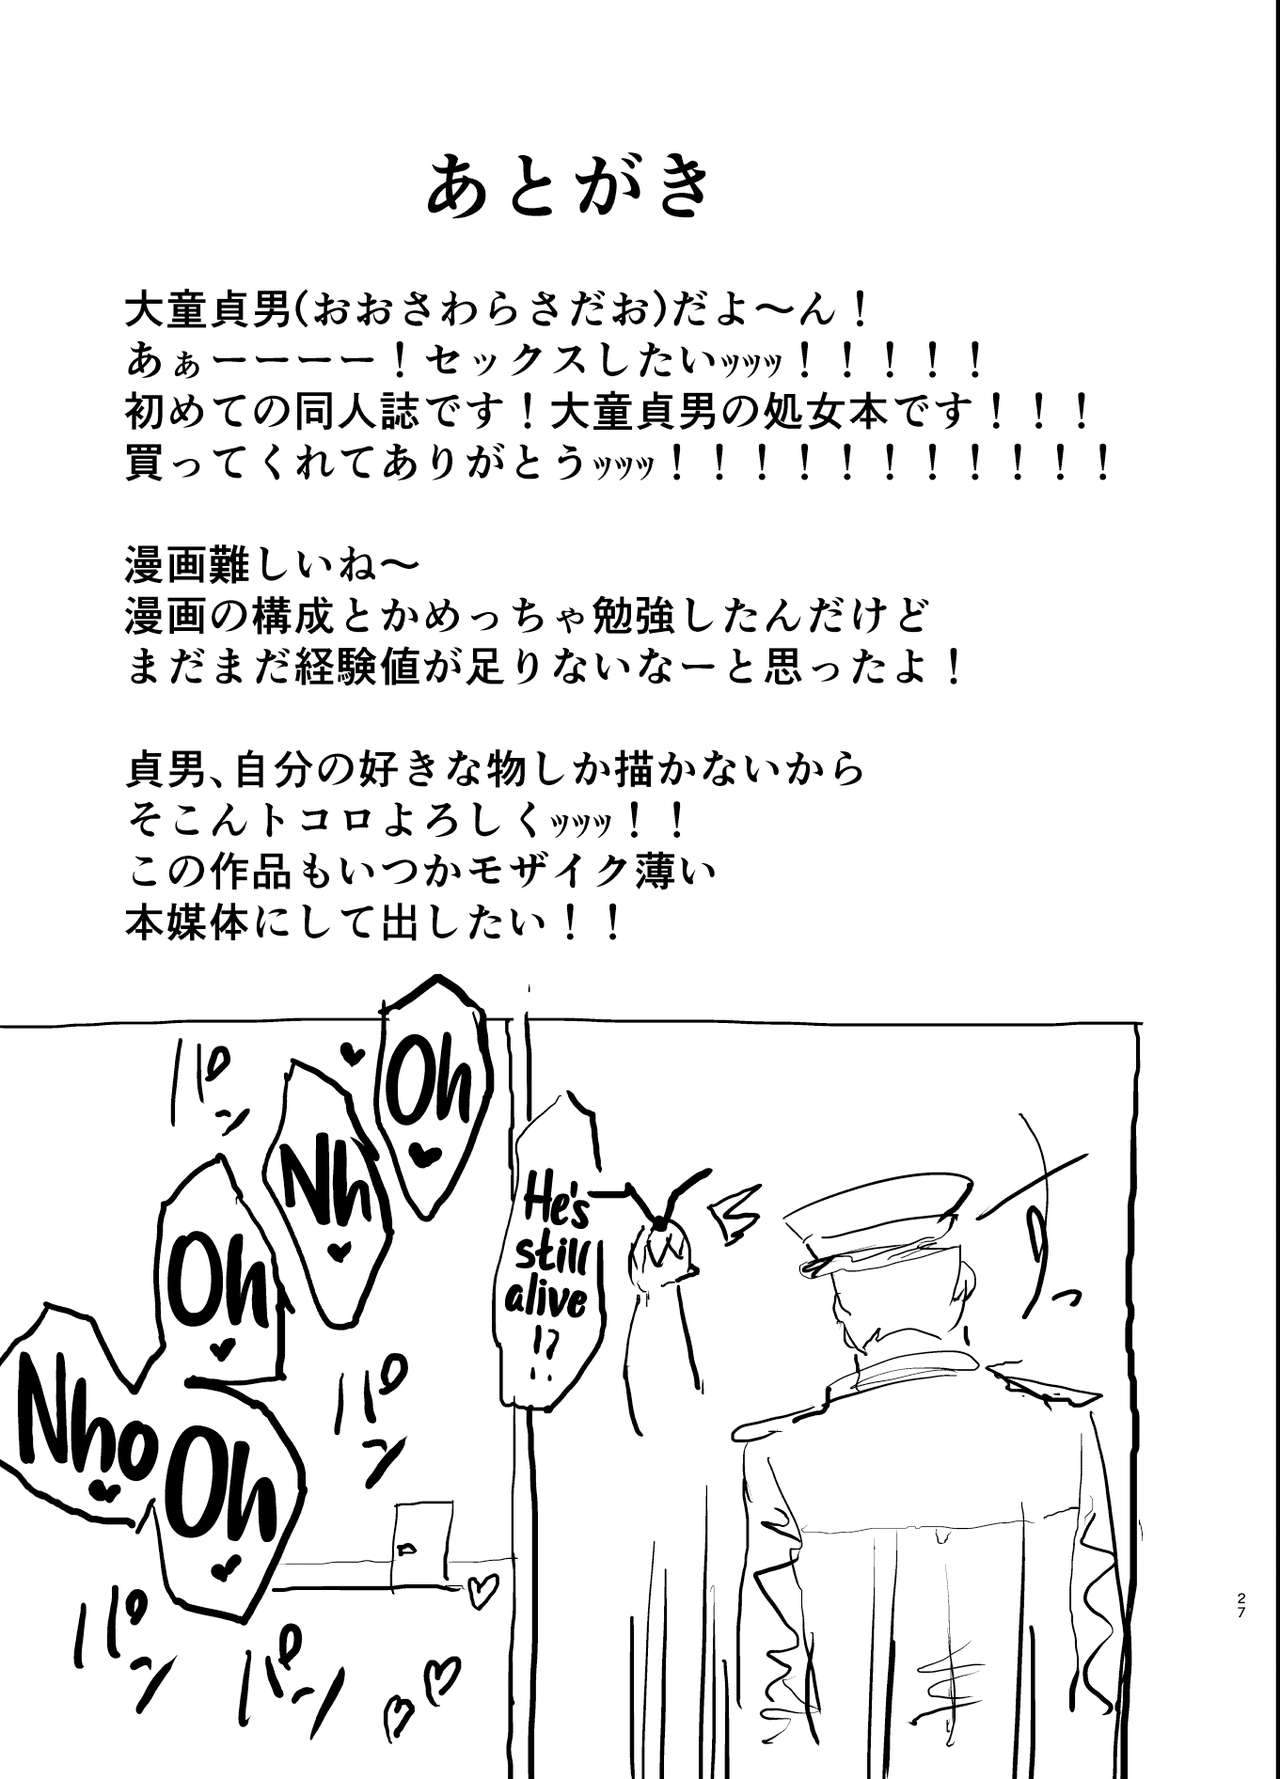 あとがき
大童貞男(おおさわらさだお)だよ～ん！
あぁーーーー！セックスしたいｯｯｯ！！！！！
初めての同人誌です！大童貞男の処女本です！！！
買ってくれてありがとうｯｯｯ！！！！！！！！！！！
漫画難しいね～
漫画の構成とかめっちゃ勉強したんだけど
まだまだ経験値が足りないなーと思ったよ！
貞男､自分の好きな物しか描かないから
そこんトコロよろしくｯｯｯ！！
この作品もいつかモザイク薄い
本媒体にして出したい！！
He's
still
alive
!?
Oh
♥
Nh
♥
Oh
♥
Nho
♥
Oh
♥
パン
パン
パン
パン
27